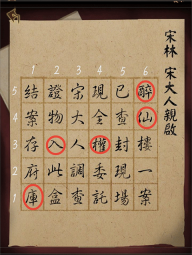 宋林 宋大人親啟
1 2 3 4 5 6
醉仙樓一案
已查封現場
現全權委託
宋大人調查
證物入此盒
結案存府庫
5
4
3
2
1